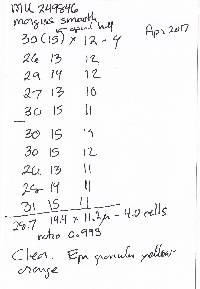 MIK 249846
margins smooth
Apr 2017
30 (15) × 12 - 4
26 13 12
29 14 12
27 13 10
30 15 11
30 15 9
30 15 12
26 13 11
28 14 11
31 15 11
28.7 14.4 × 11.2µ - 4.0 cells
ratio 0.993
Clear. Epi granular yellow-
orange